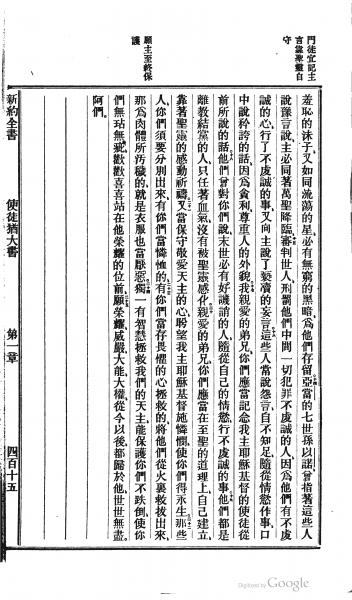 門徒宜記主
言靠聖靈自
守
羞恥的沫子又如同流蕩的星必有無窮的黑暗爲他們存留亞當的七世孫以諾曾指著這些人
說豫言說主必同著萬聖降臨審判世人刑罰他們中間一切犯罪不虔誠的人因爲他們有不虔
誠的心行了不虔誠的事又向主說了褻瀆的妄言這些人常說怨言自不知足隨從情慾作事口
中說矜誇的話因爲貪利尊重人的外貌我親愛的弟兄你們應當記念我主耶穌基督的使徒從
前所說的話他們曾對你們說末世必有好譏誚的人隨從自己的情慾行不虔誠的事他們都是
離教結黨的人只任著血氣沒有被聖靈感化親愛的弟兄你們應當在至聖的道理上自己建立
願主至終保
護
靠著聖靈的感動祈禱又當保守敬愛天主的心盼望我主耶穌基督施憐憫使你們得永生那些
人你們須要分別出來有你們當憐恤的有你們當存畏懼的心拯救的將他們從火裏救拔出來
那爲肉體所污穢的就是衣服也當厭惡獨一有智慧拯救我們的天主能保護你們不跌倒使你
們無玷無疵歡歡喜喜站在他榮耀的位前願榮耀威嚴大能大權從今以後都歸於他世世無盡
阿們
新約全書 使徒猶大書 第一章 四百十五
Digitized by Google